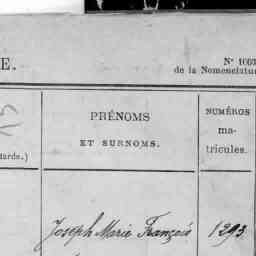 E.
N° 1003
de la Nomenclatu
PRÉNOMS
ET SURNOMS.
NUMÉROS
ma-
tricules.
tards.)
Joseph Marie François 1293